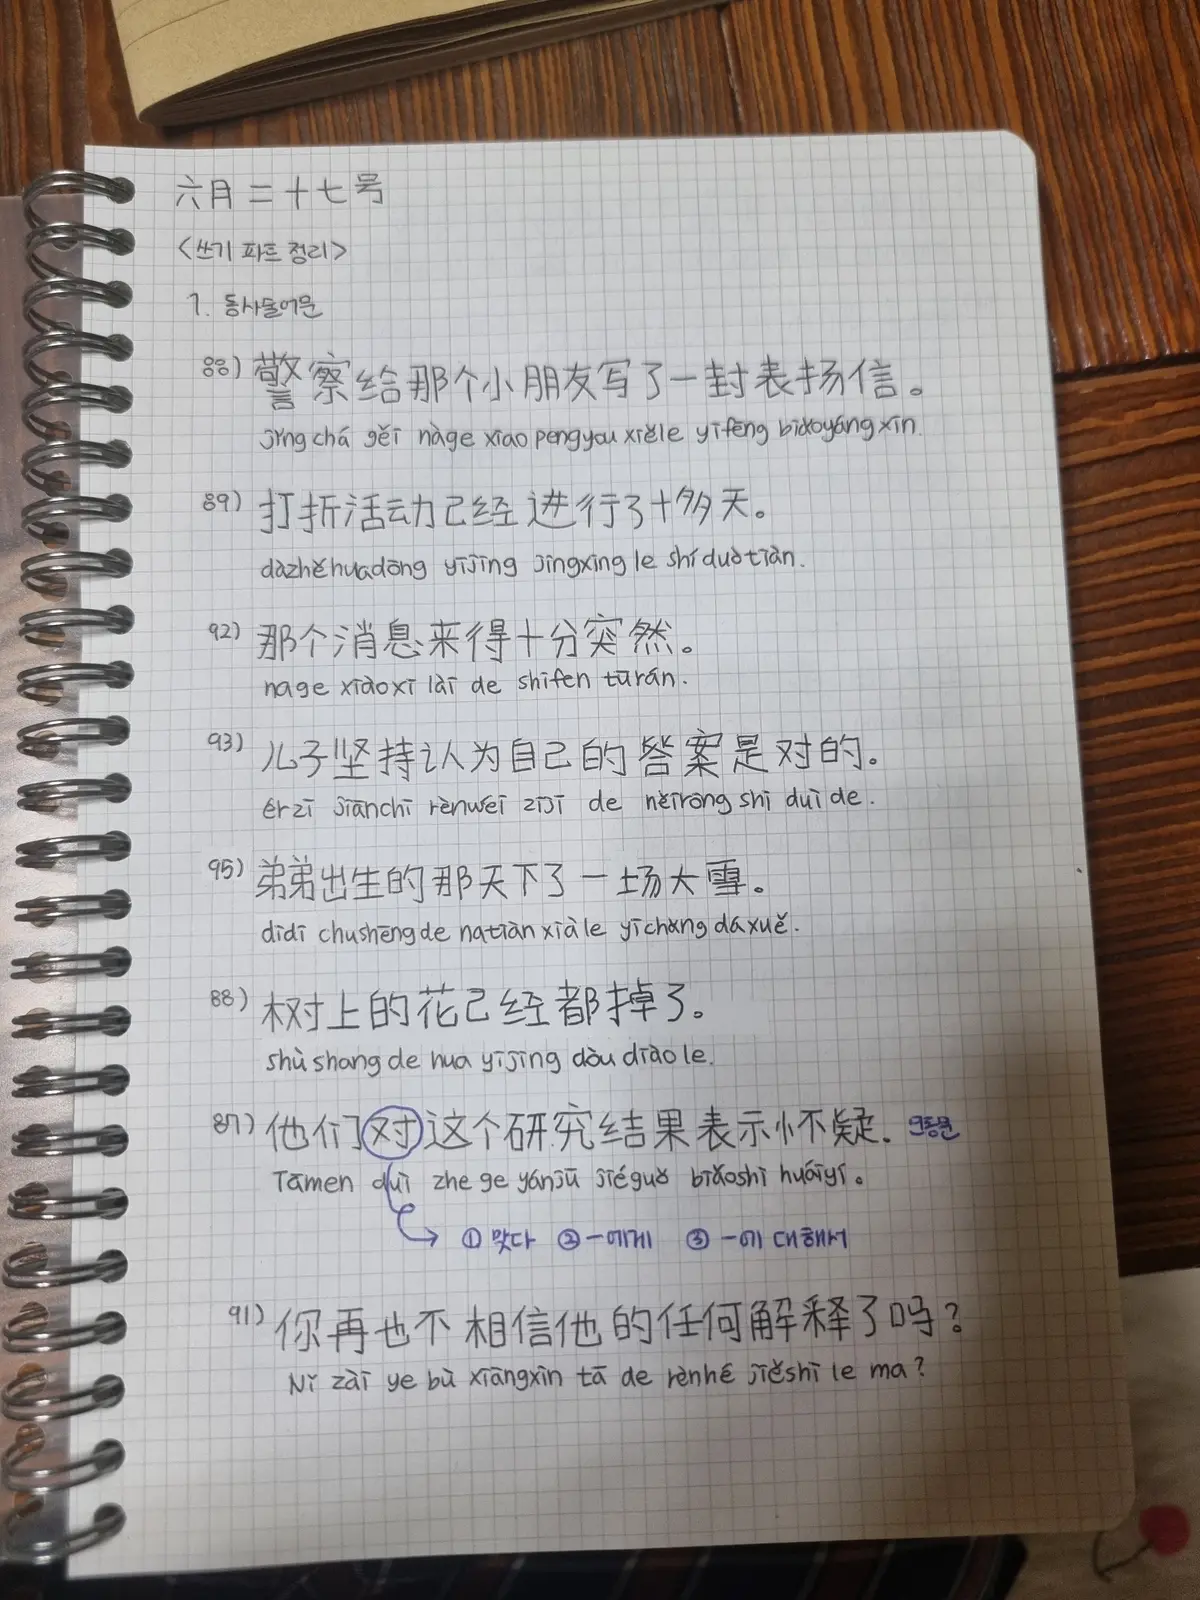 六月二十七号
<쓰기 파트 정리>
1. 동사술어문
88) 警察给那个小朋友写了一封表扬信。
jǐngchá gěi nàge xiao pengyou xiěle yīfēng biǎoyáng xìn.
89) 打折活动已经进行了十多天。
dàzhěhuadōng yǐjīng jìngxíng le shíduōtiān.
92) 那个消息来得十分突然。
nage xiāoxi lài de shífen tūrán.
93) 儿子坚持认为自己的答案是对的。
érzī jiānchí rènwéi zìjǐ de nèirōng shì duì de.
95) 弟弟出生的那天下了一场大雪。
dìdi chushēngde natiān xiàle yīchǎng dáxuě.
88) 树上的花已经都掉了。
shù shang de hua yǐjīng dòu diào le.
87) 他们对这个研究结果表示怀疑. 연동문
Tāmen duì zhe ge yánjū jiéguǒ biǎoshì huáiyí.
① 맞다 ② -에게 ③ -에 대해서
91) 你再也不相信他的任何解释了吗?
Nǐ zài ye bù xiāngxìn tā de rènhé jiěshì le ma?